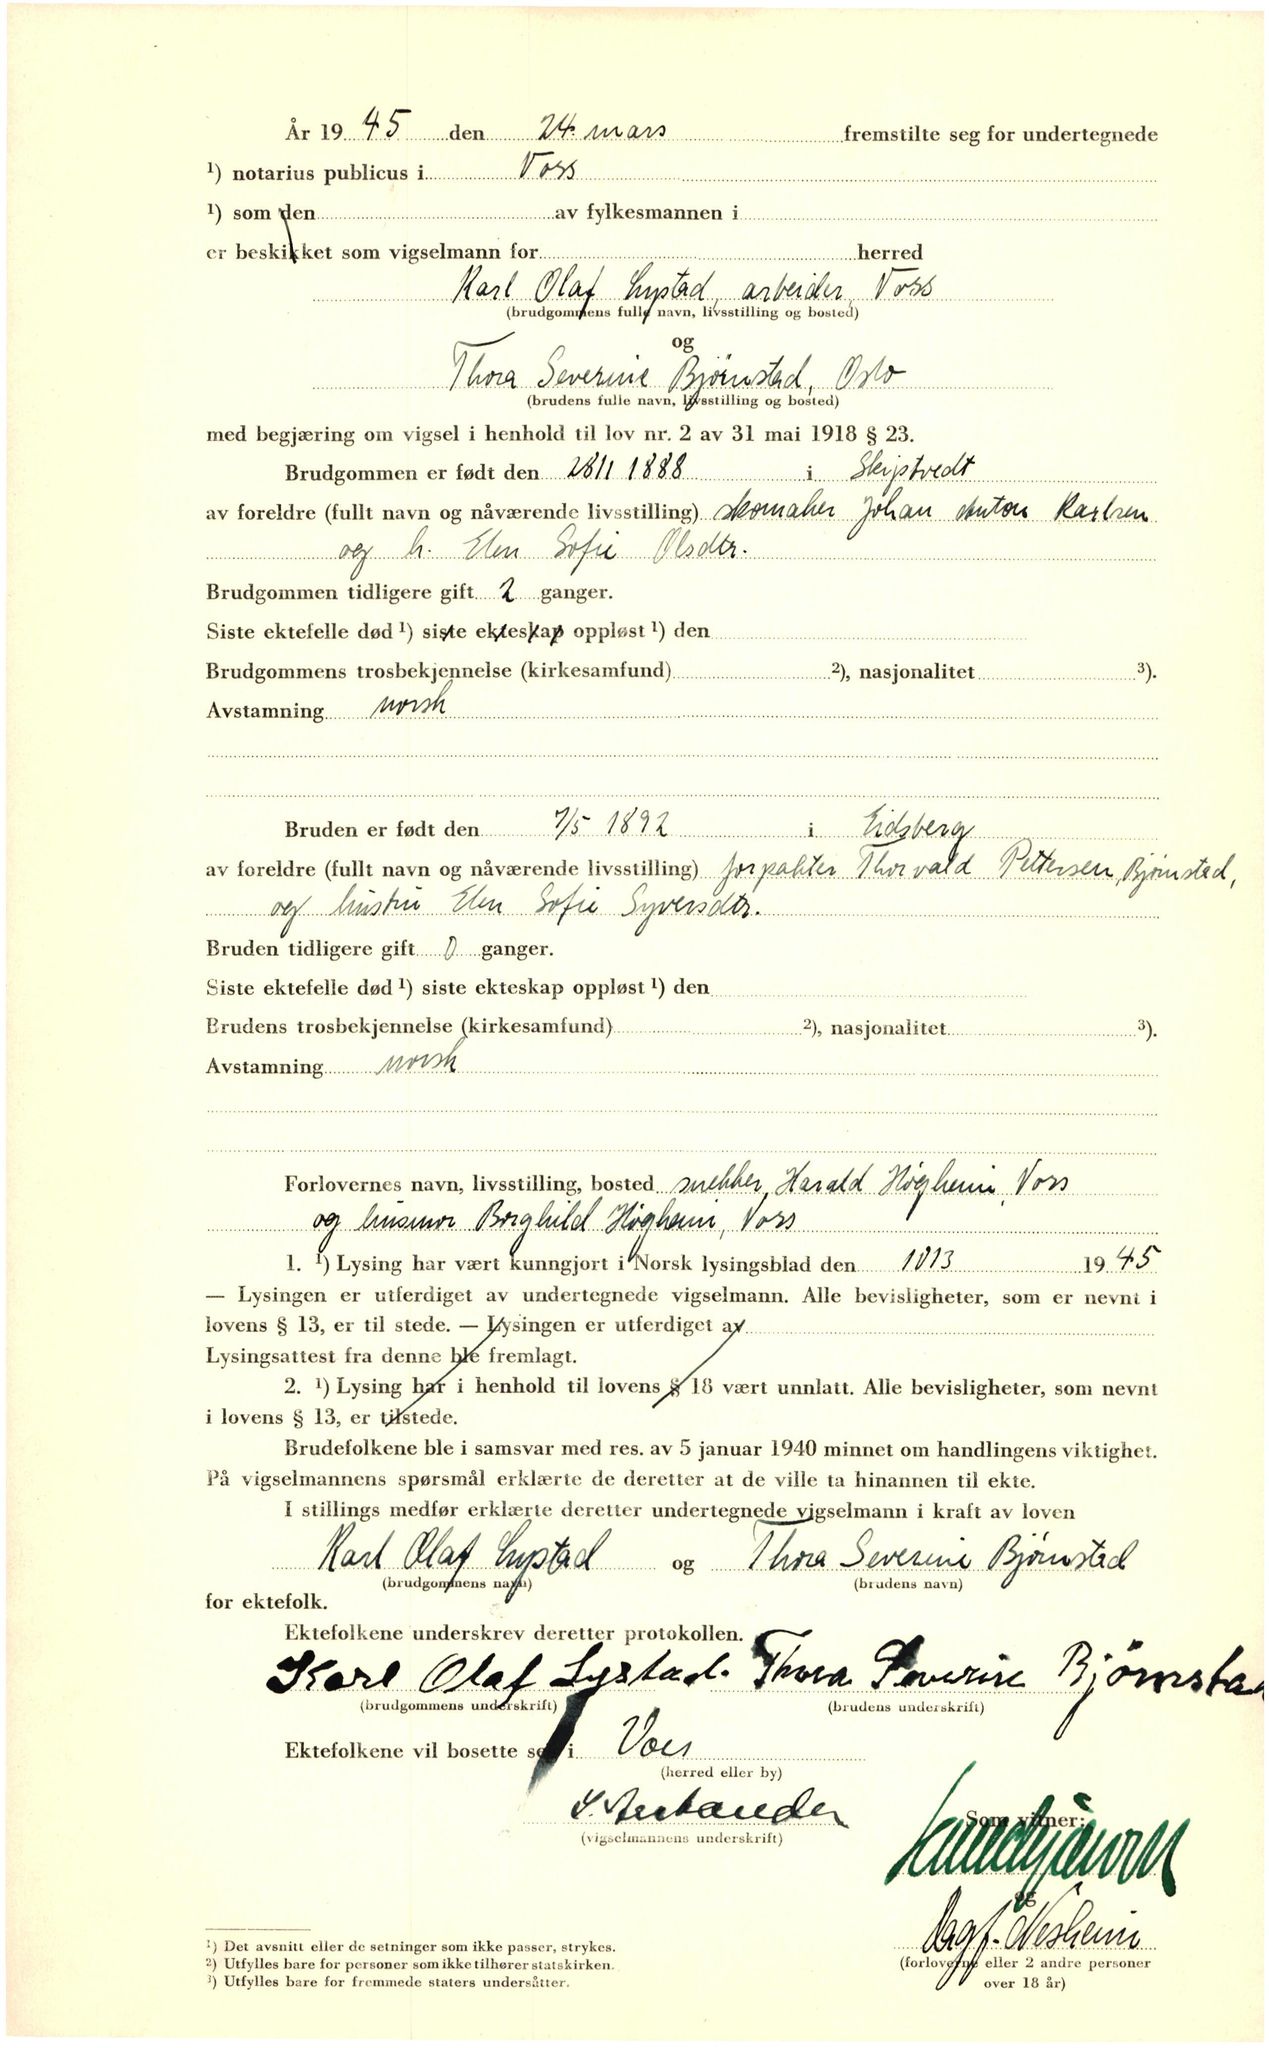 År 19 45 den 24. mars fremstilte seg for undertegnede
¹) notarius publicus i Voss
¹) som den av fylkesmannen i
er beskikket som vigselmann for herred
Karl Olaf Lystad, arbeider, Voss
(brudgommens fulle navn, livsstilling og bosted)
og
Thora Severine Bjørnstad, Oslo
(brudens fulle navn, livsstilling og bosted)
med begjæring om vigsel i henhold til lov nr. 2 av 31 mai 1918 § 23.
Brudgommen er født den 28/1 1888 i Skiptvedt
av foreldre (fullt navn og nåværende livsstilling) skomaker Johan Anton Karlsen
og h. Elen Sofie Olsdtr.
Brudgommen tidligere gift 2 ganger.
Siste ektefelle død ¹) siste ekteskap oppløst ¹) den
Brudgommens trosbekjennelse (kirkesamfund) ²), nasjonalitet ³).
Avstamning norsk
Bruden er født den 7/5 1892 i Eidsberg
av foreldre (fullt navn og nåværende livsstilling) forpakter Thorvald Pettersen, Bjørnstad,
og hustru Elen Sofie Syversdtr.
Bruden tidligere gift 0 ganger.
Siste ektefelle død ¹) siste ekteskap oppløst ¹) den
Brudens trosbekjennelse (kirkesamfund) ²), nasjonalitet ³).
Avstamning norsk
Forlovernes navn, livsstilling, bosted snekker Harald Høgheim, Voss
og husmor Borghild Høgheim, Voss
1. ¹) Lysing har vært kunngjort i Norsk lysingsblad den 10/3 19 45
— Lysingen er utferdiget av undertegnede vigselmann. Alle bevisligheter, som er nevnt i
lovens § 13, er til stede. — Lysingen er utferdiget av
Lysingsattest fra denne ble fremlagt.
2. ¹) Lysing har i henhold til lovens § 18 vært unnlatt. Alle bevisligheter, som nevnt
i lovens § 13, er tilstede.
Brudefolkene ble i samsvar med res. av 5 januar 1940 minnet om handlingens viktighet.
På vigselmannens spørsmål erklærte de deretter at de ville ta hinannen til ekte.
I stillings medfør erklærte deretter undertegnede vigselmann i kraft av loven
Karl Olaf Lystad og Thora Severine Bjørnstad
(brudgommens navn) (brudens navn)
for ektefolk.
Ektefolkene underskrev deretter protokollen.
Karl Olaf Lystad. Thora Severine Bjørnstad
(brudgommens underskrift) (brudens underskrift)
Ektefolkene vil bosette seg i Voss
(herred eller by)
(vigselmannens underskrift)
Som vitner:
og
Dagf. Nesheim
(forloverne eller 2 andre personer
over 18 år)
¹) Det avsnitt eller de setninger som ikke passer, strykes.
²) Utfylles bare for personer som ikke tilhører statskirken.
³) Utfylles bare for fremmede staters undersåtter.